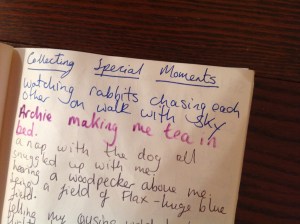 Collecting Special Moments
Watching rabbits chasing each
other on walk with SKY
Archie making me tea in
bed.
a nap with the dog all
snuggled up with me.
hearing a woodpecker above me.
a field of Flax - huge blue
field.
my